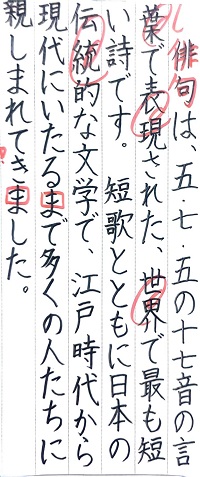 俳句は、五・七・五の十七音の言
葉で表現された、世界で最も短
い詩です。短歌とともに日本の
伝統的な文学で、江戸時代から
現代にいたるまで多くの人たちに
親しまれてきました。